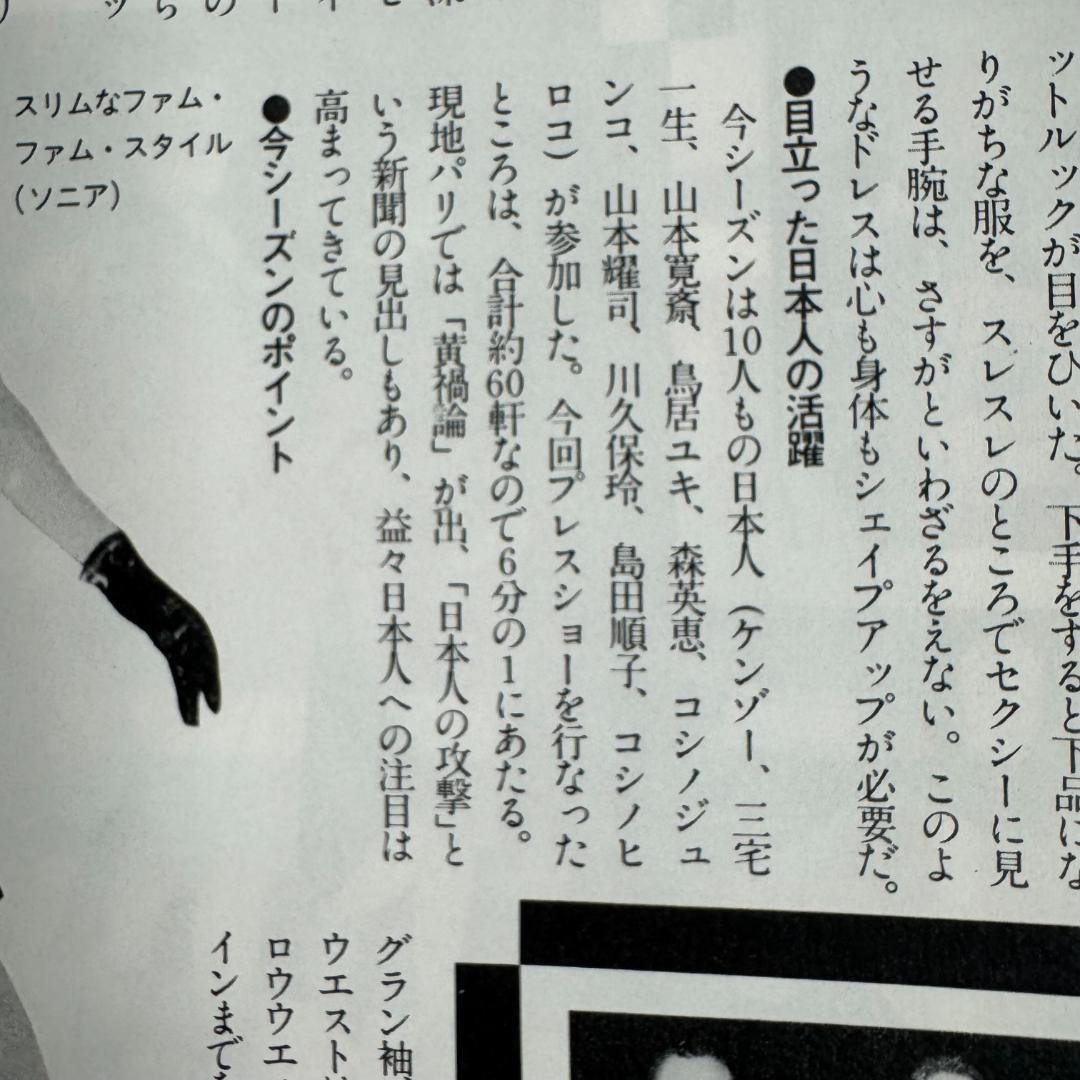 ットルックが目をひいた。下手をすると下品にな
りがちな服を、スレスレのところでセクシーに見
せる手腕は、さすがといわざるをえない。このよ
うなドレスは心も身体もシェイプアップが必要だ。
●目立った日本人の活躍
今シーズンは10人もの日本人（ケンゾー、三宅
一生、山本寛斎、鳥居ユキ、森英恵、コシノジュ
ンコ、山本耀司、川久保玲、島田順子、コシノヒ
ロコ）が参加した。今回プレスショーを行なった
ところは、合計約60軒なので6分の1にあたる。
現地パリでは「黄禍論」が出、「日本人の攻撃」と
いう新聞の見出しもあり、益々日本人への注目は
高まってきている。
●今シーズンのポイント
スリムなファム・
ファム・スタイル
（ソニア）
グラン袖、
ウエスト
ロウウエ
インまで